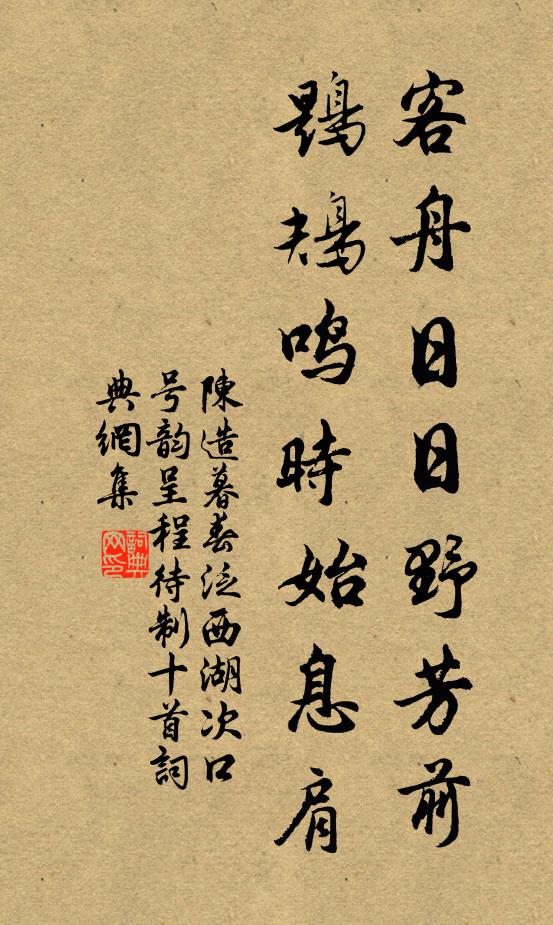 客舟日日野芳前
鶗鳺鳴時始息肩
陳造暮春泛西湖次口
号韵呈程待制十首詞
典網集
詞典网印